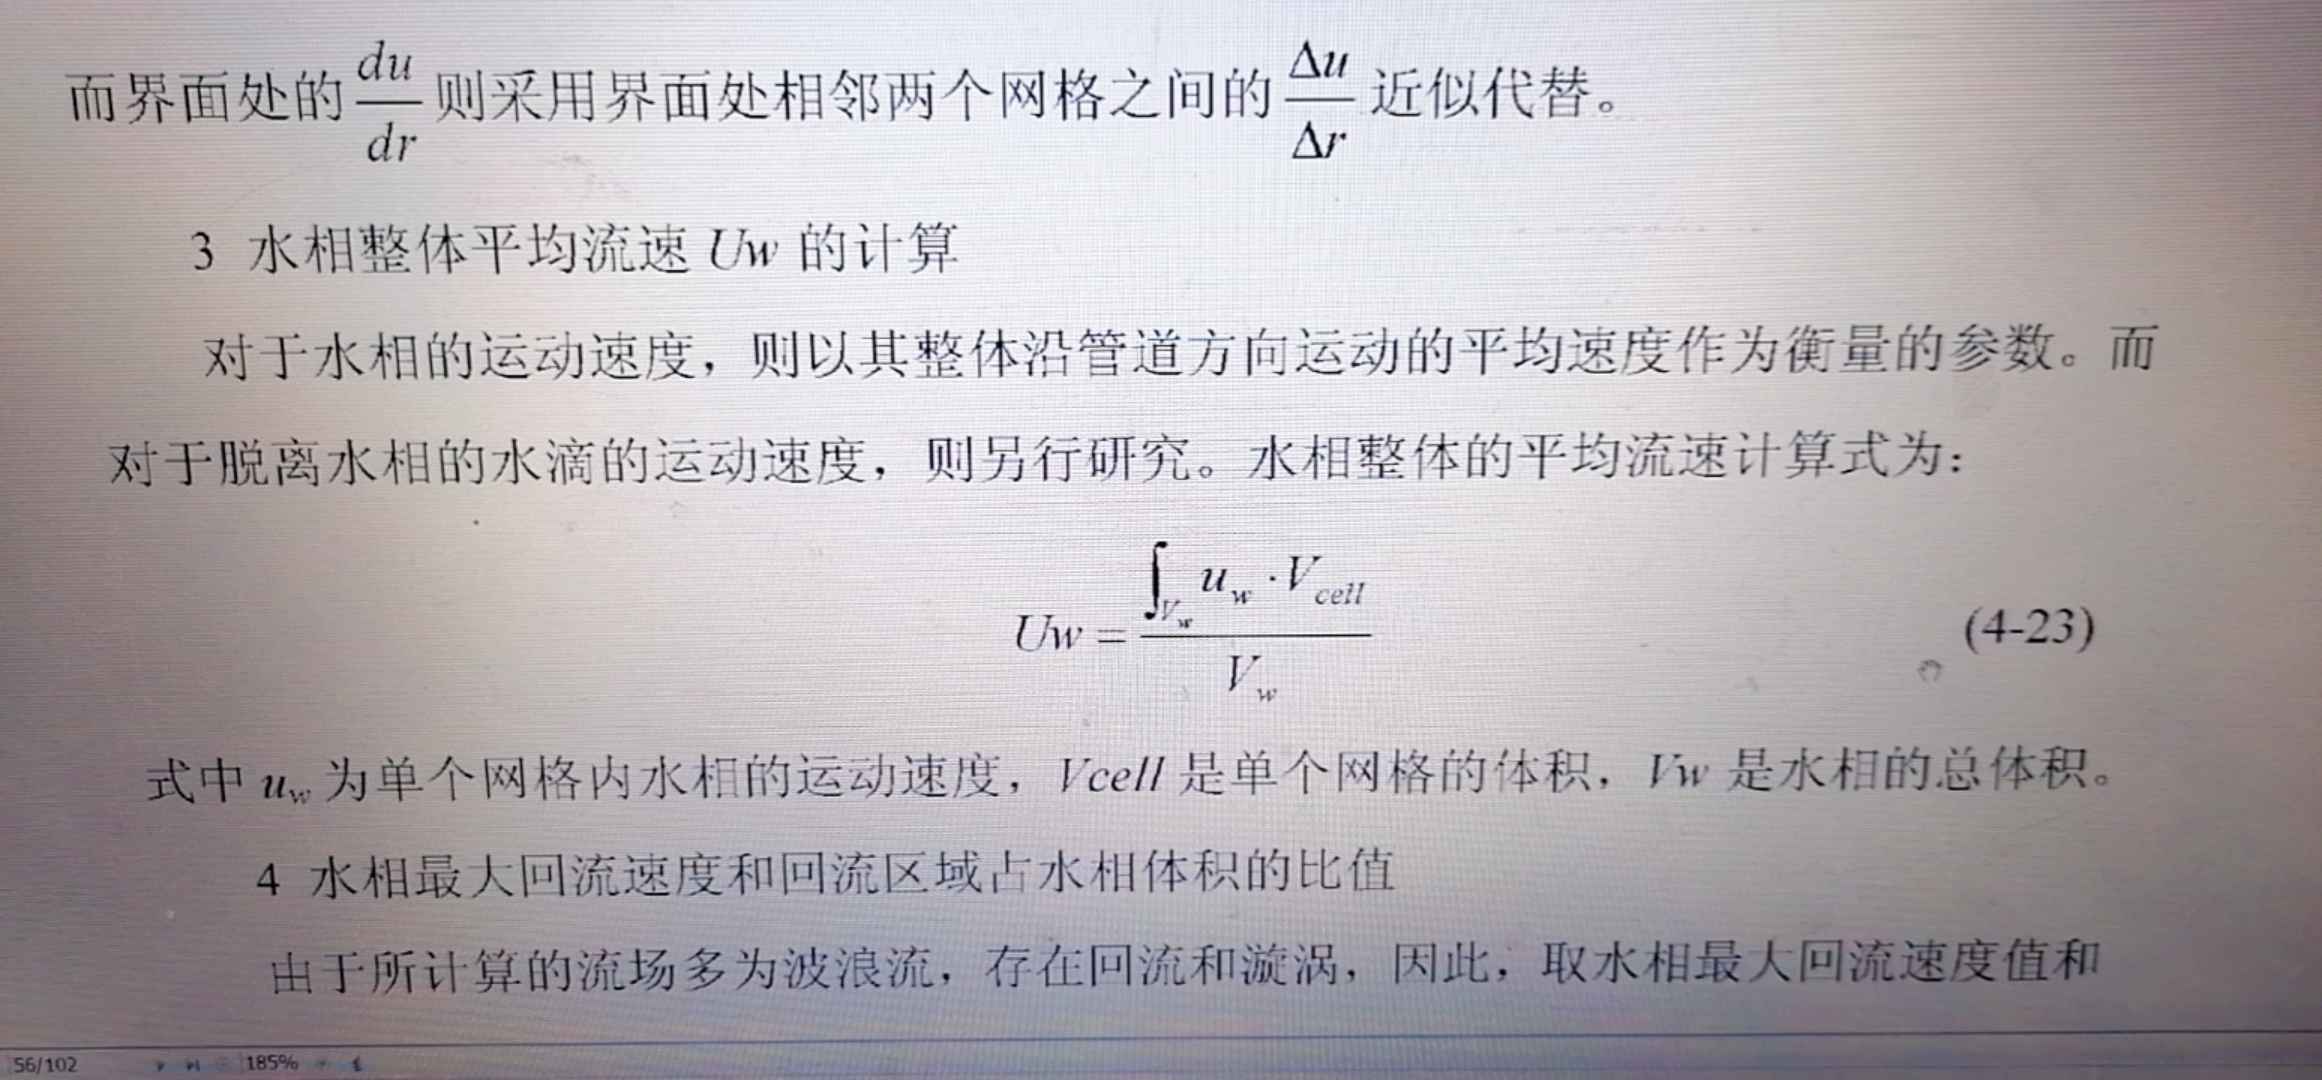 而界面处的 du/dr 则采用界面处相邻两个网格之间的 Δu/Δr 近似代替。
3 水相整体平均流速 Uw 的计算
对于水相的运动速度，则以其整体沿管道方向运动的平均速度作为衡量的参数。而
对于脱离水相的水滴的运动速度，则另行研究。水相整体的平均流速计算式为：
Uw = ∫_{V_w} u_w · V_cell / V_w (4-23)
式中 u_w 为单个网格内水相的运动速度，Vcell 是单个网格的体积，Vw 是水相的总体积。
4 水相最大回流速度和回流区域占水相体积的比值
由于所计算的流场多为波浪流，存在回流和漩涡，因此，取水相最大回流速度值和
56/102 185%